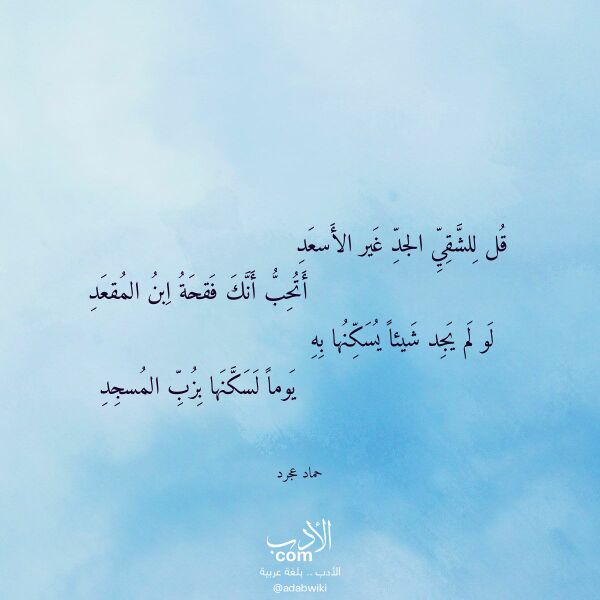 قُل لِلشَّقِيِّ الجدِّ غَير الأَسعَدِ
أَتُحِبُّ أَنَّكَ فَقحَةُ اِبنُ المُقعَدِ
لَو لَم يَجِد شَيئاً يُسَكِّنُها بِهِ
يَوماً لَسَكَّنَها بِزُبِّ المُسجِدِ
حماد عجرد
الأدب
com
الأدب .. بلغة عربية
@adabwiki